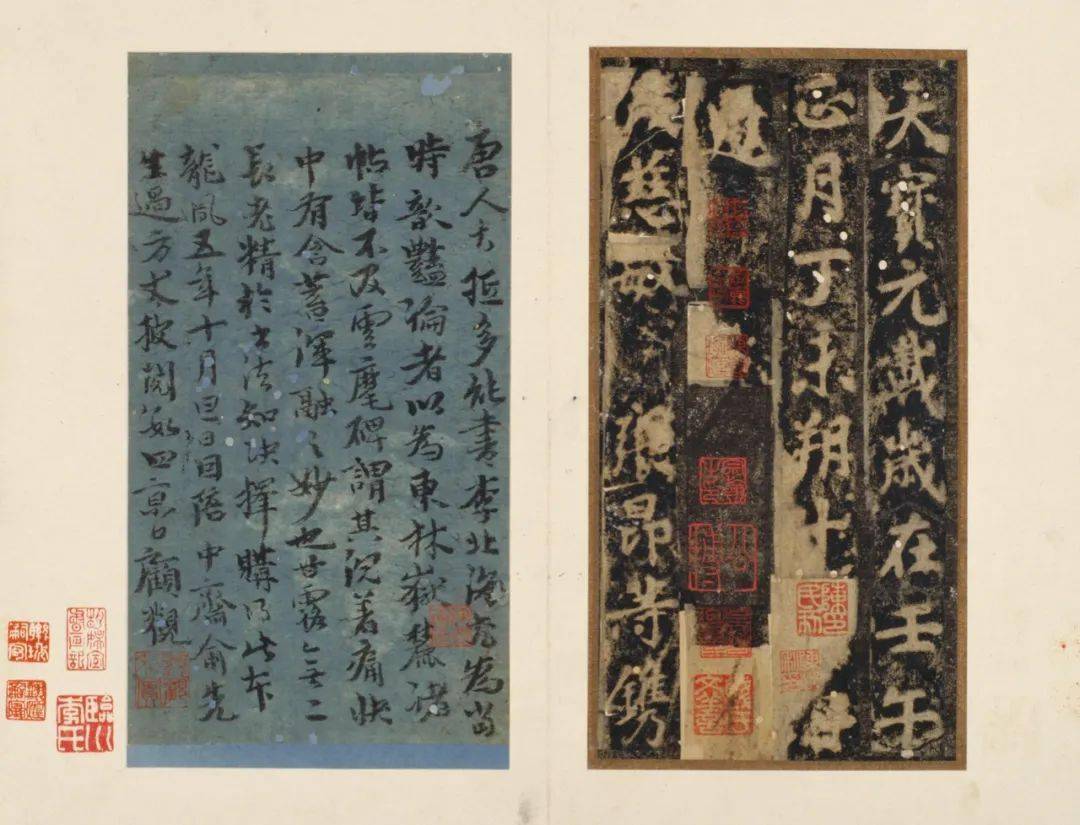 天寶元載歲在壬午
正月丁未朔十
慈敏張昂等鐫
唐人大抵多能書李北海尤為當
時歆豔論者以為東林嶽麓諸
帖皆不及雲麾碑謂其沉着痛快
中有含蓄渾融之妙也甘露無二
長老精於書法知決擇購得此本
龍鳳五年十月日因陪中齋俞先
生過方丈披閱數四京口顧觀
臨川李氏